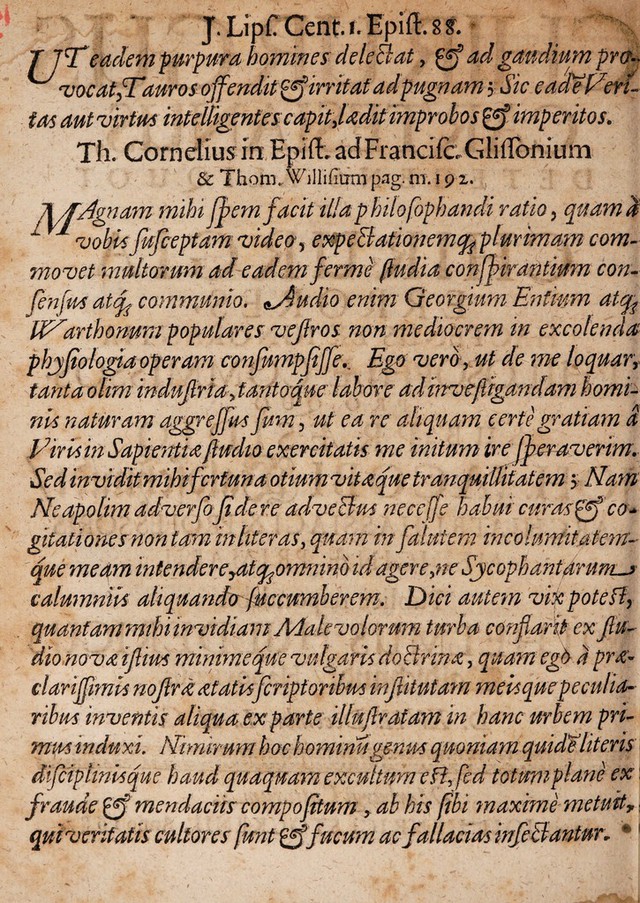 J. Lipſ. Cent. 1. Epiſt. 88.
UT eadem purpura homines delectat, & ad gaudium pro-
vocat, Tauros offendit & irritat ad pugnam; Sic eadē Veri-
tas aut virtus intelligentes capit, lædit improbos & imperitos.
Th. Cornelius in Epiſt. ad Franciſc. Gliſſonium
& Thom. Williſium pag. m. 192.
MAgnam mihi ſpem facit illa philoſophandi ratio, quam â
vobis ſuſceptam video, expectationemq; plurimam com-
movet multorum ad eadem fermè ſtudia conſpirantium con-
ſenſus atq; communio. Audio enim Georgium Entium atq;
Warthonum populares veſtros non mediocrem in excolenda
phyſiologia operam conſumpſiſſe. Ego verò, ut de me loquar,
tanta olim induſtria, tantoque labore ad inveſtigandam homi-
nis naturam aggreſſus ſum, ut ea re aliquam certè gratiam â
Viris in Sapientiæ ſtudio exercitatis me initum ire ſperaverim.
Sed invidit mihi fortuna otium vitæque tranquillitatem; Nam
Neapolim adverſo ſidere advectus neceſſe habui curas & co-
gitationes non tam in literas, quam in ſalutem incolumitatem-
que meam intendere, atq; omninò id agere, ne Sycophantarum
calumniis aliquando ſuccumberem. Dici autem vix poteſt,
quantam mihi invidiam Malevolorum turba conflarit ex ſtu-
dio novæ iſtius minimeque vulgaris doctrinæ, quam egò à præ-
clariſſimis noſtræ ætatis ſcriptoribus inſtitutam meisque peculia-
ribus inventis aliqua ex parte illuſtratam in hanc urbem pri-
mus induxi. Nimirum hoc hominū genus quoniam quidē literis
diſciplinisque haud quaquam excultum eſt, ſed totum planè ex
fraude & mendaciis compoſitum, ab his ſibi maximè metuit,
qui veritatis cultores ſunt & fucum ac fallacias inſectantur.